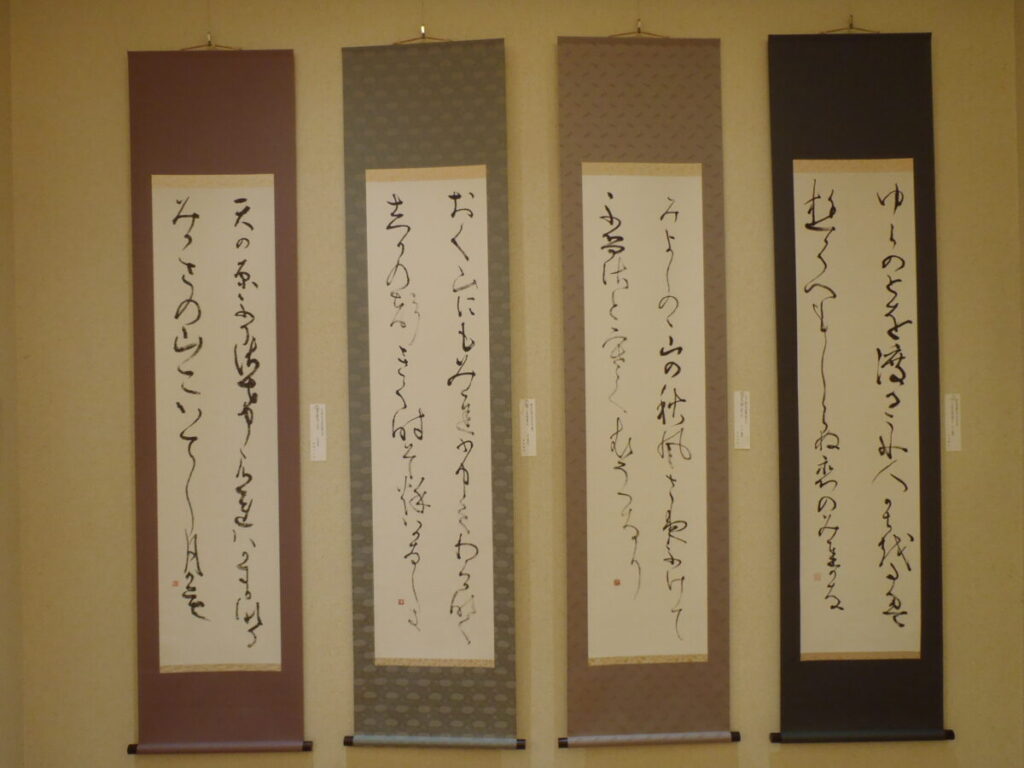 ゆらのとを渡るふな人かぢをたえ
行くへもしらぬ恋のみちかな
みよしのの山の秋風さ夜ふけて
ふるさと寒く衣うつなり
おく山にもみぢふみわけ鳴く
しかの聲きく時ぞ秋はかなしき
天の原ふりさけ見れば春日なる
みかさの山にいでし月かも